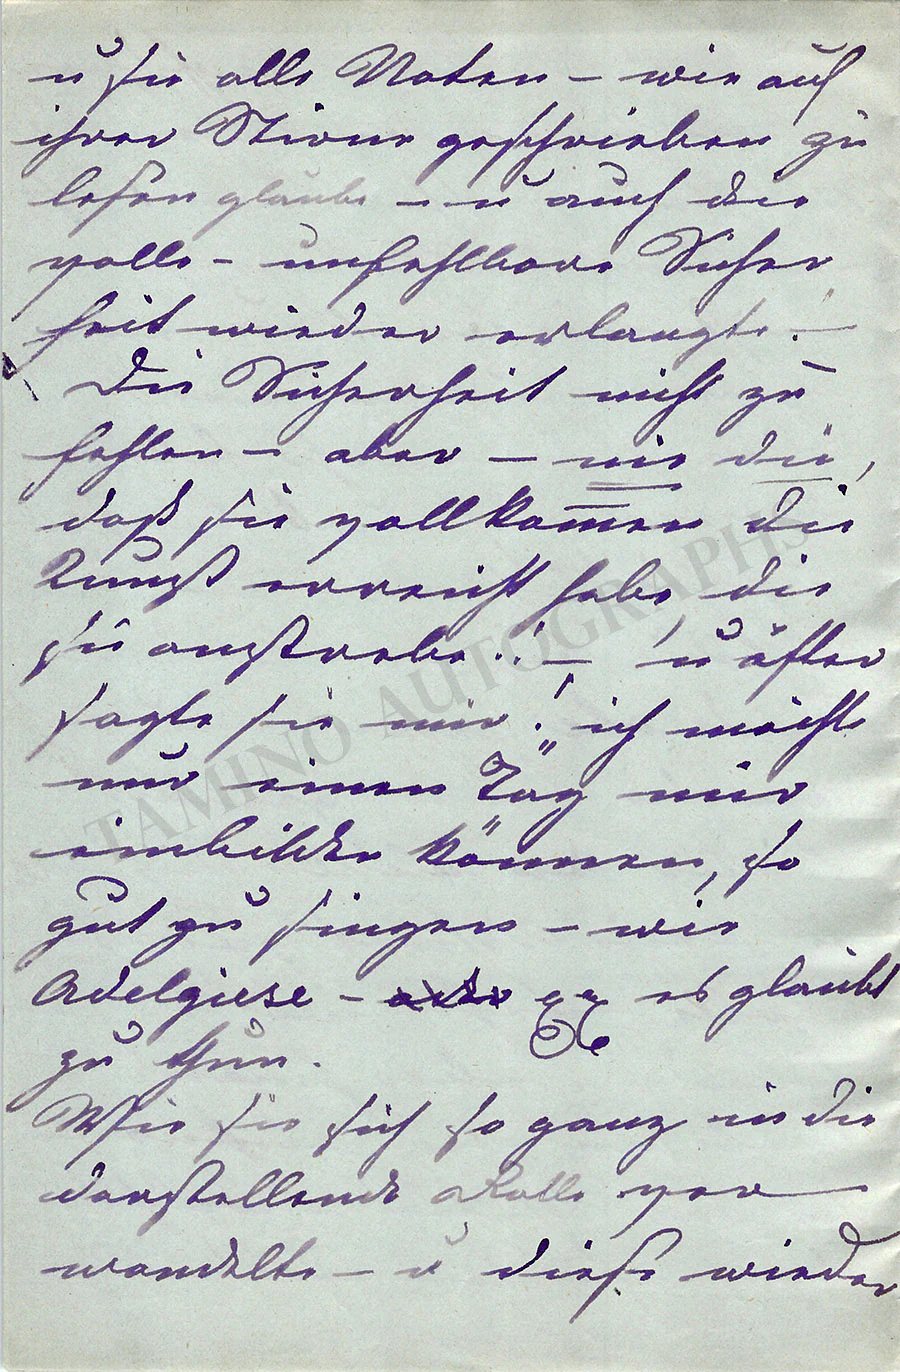 u sie alle Noten – wie auf
ihrer Stirne geschrieben zu
lesen glaubte – u auch die
volle – unfehlbare Sicher
heit wieder erlangte. –
Die Sicherheit nicht zu
fehlen – aber – nie die,
daß sie vollkommen die
Kunst erreicht habe, die
sie anstrebe.! – u öfter
sagte sie mir! ich möchte
nur einen "Tag" mir
einbilden können, so
gut zu singen – wie
Adelgiese – es glaubt
zu thun.
Wie sie sich so ganz in die
darstellende Rolle ver
wandelte – u diese wieder
TAMINO AUTOGRAPHS